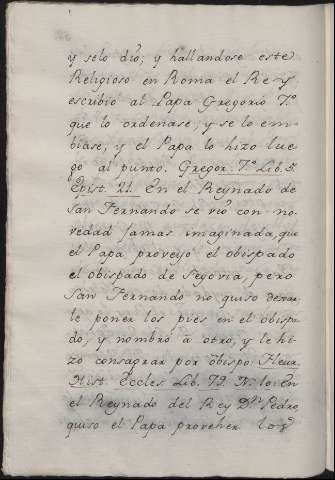 y selo dió; y hallandose este
Religioso en Roma el Rey
escribio al Papa Gregorio 7.º
que lo ordenase, y se lo em-
biase, y el Papa lo hizo lue
go al punto. Gregor. 7.º Lib. 5.
Epist. 21. En el Reynado de
San Fernando se vió con no-
vedad Jamas imaginada, que
el Papa proveyó el obispado
el obispado de Segovia, pero
San Fernando no quiso dexar
le poner los pies en el obispa
do, y nombró à otro, y le hi-
zo consagrar por obispo. Fleur.
Hist. Eccles. Lib. 72. N. 10. En
el Reynado del Rey D.n Pedro
quiso el Papa proveher los